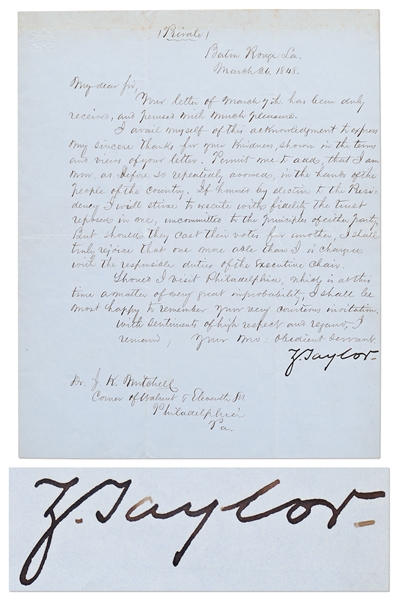 (Private)
Baton Rouge La.
March 26. 1848.
My dear Sir,
Your letter of March 7th has been duly
received, and perused with much pleasure.
I avail myself of this acknowledgment to express
my sincere thanks for your kindness, shown in the terms
and views of your letter. Permit me to add, that I am
now, as before so repeatedly avowed, in the hands of the
People of the country. If honored by election to the Presi-
dency I will strive to execute with fidelity the trust
reposed in me, uncommitted to the principles of either party
But should they cast their votes for another, I shall
truly rejoice that one more able than I is charged
with the responsible duties of the Executive Chair.
Should I visit Philadelphia, which is at this
time a matter of very great improbability, I shall be
most happy to remember your very courteous invitation,
With sentiments of high respect and regard, I
remain, Your Mo. Obedient Servant
Z. Taylor-
Dr. J. K. Mitchell
Corner of Walnut & Eleventh St.
Philadelphia
Pa.
Z. Taylor-